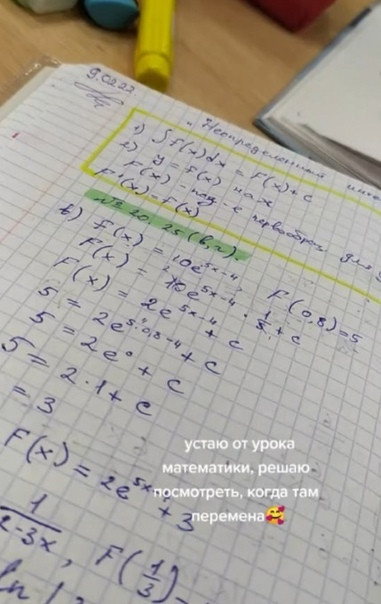 9.02.22
"Неопределенный
1) ∫f(x)dx = F(x)+c
2) y = F(x) наз
F(x) - первообраз для
F'(x) = f(x)
№ 20.25(в,г).
в) f(x) = 10e^{5x-4} F(0,8)=5
F(x) = 10e^{5x-4} · 1/5 + c
F(x) = 2e^{5x-4} + c
5 = 2e^{5·0,8-4} + c
5 = 2e^0 + c
5 = 2·1 + c
= 3
F(x) = 2e^{5x} + 3
1/(2-3x), F(1/3)
устаю от урока
математики, решаю
посмотреть, когда там
перемена🥰